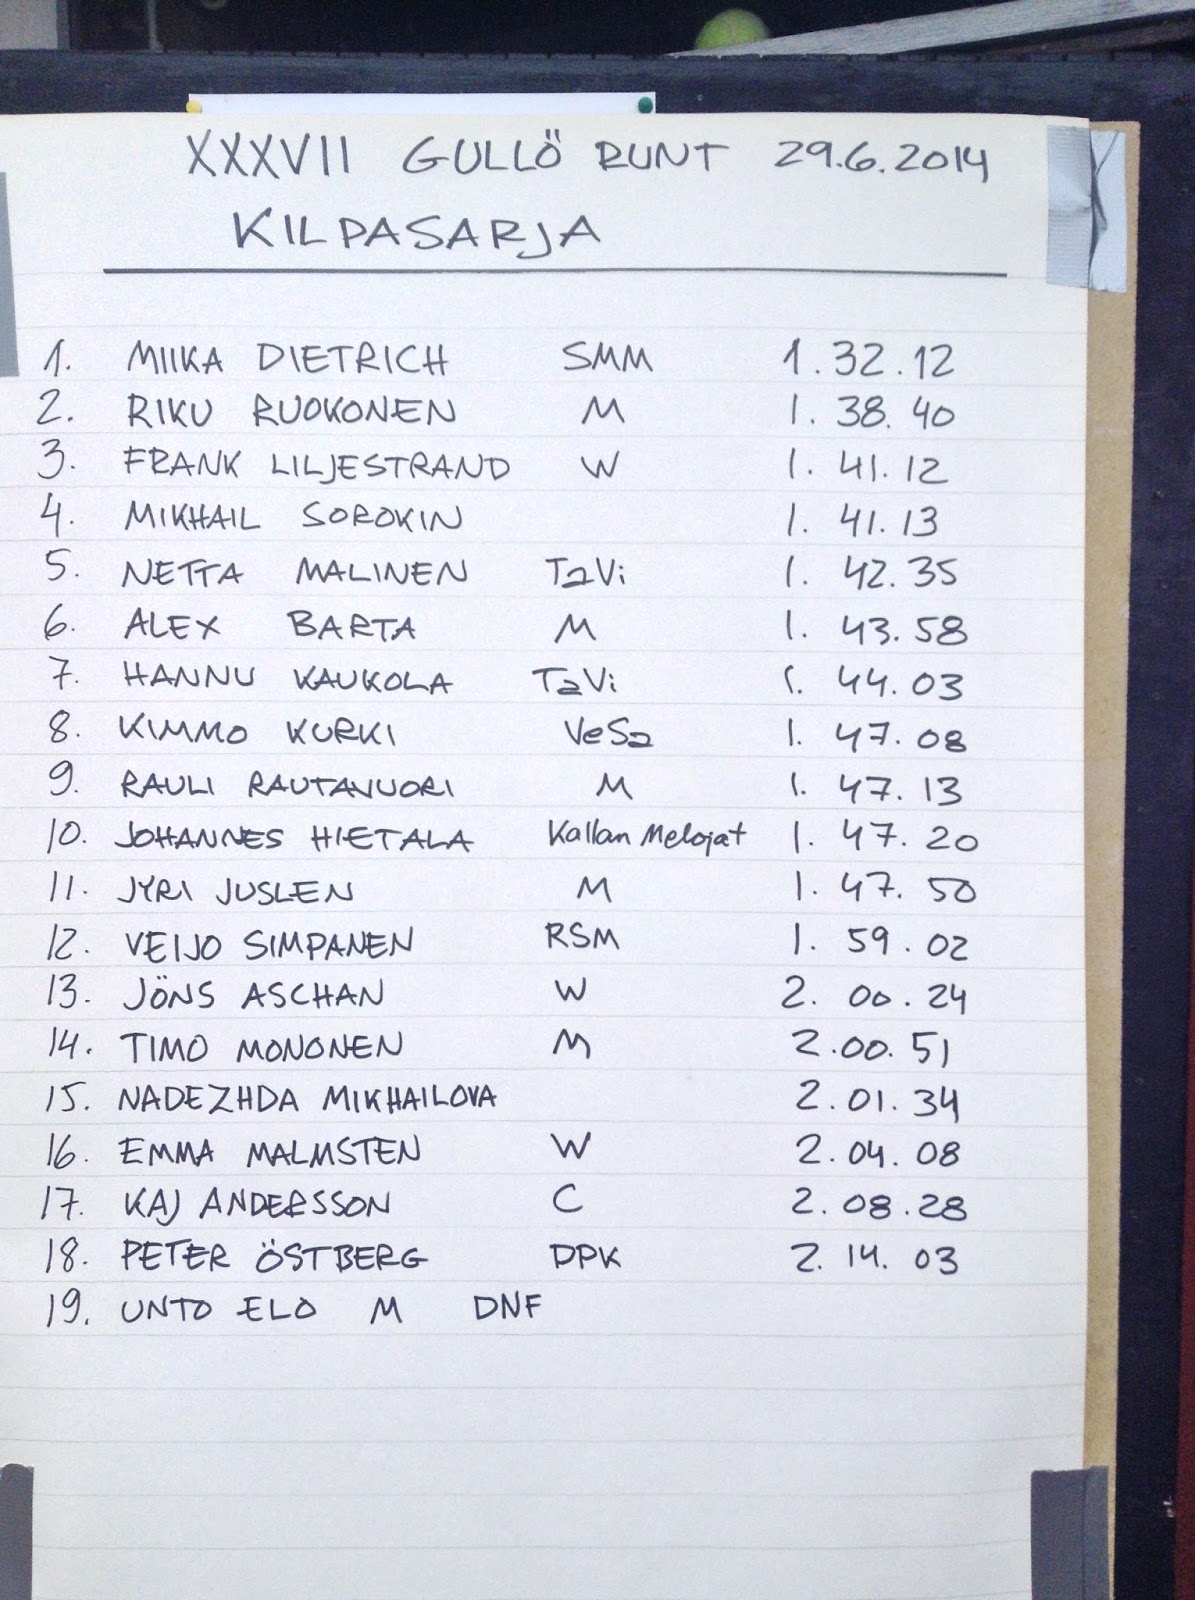 XXXVII GULLÖ RUNT 29.6.2014
KILPASARJA
1. MIIKA DIETRICH SMM 1.32.12
2. RIKU RUOKONEN M 1.38.40
3. FRANK LILJESTRAND W 1.41.12
4. MIKHAIL SOROKIN 1.41.13
5. NETTA MALINEN TaVi 1.42.35
6. ALEX BARTA M 1.43.58
7. HANNU KAUKOLA TaVi 1.44.03
8. KIMMO KURKI VeSa 1.47.08
9. RAULI RAUTAVUORI M 1.47.13
10. JOHANNES HIETALA Kallan Melojat 1.47.20
11. JYRI JUSLEN M 1.47.50
12. VEIJO SIMPANEN RSM 1.59.02
13. JÖNS ASCHAN W 2.00.24
14. TIMO MONONEN M 2.00.51
15. NADEZHDA MIKHAILOVA 2.01.34
16. EMMA MALMSTEN W 2.04.08
17. KAJ ANDERSSON C 2.08.28
18. PETER ÖSTBERG DPK 2.14.03
19. UNTO ELO M DNF